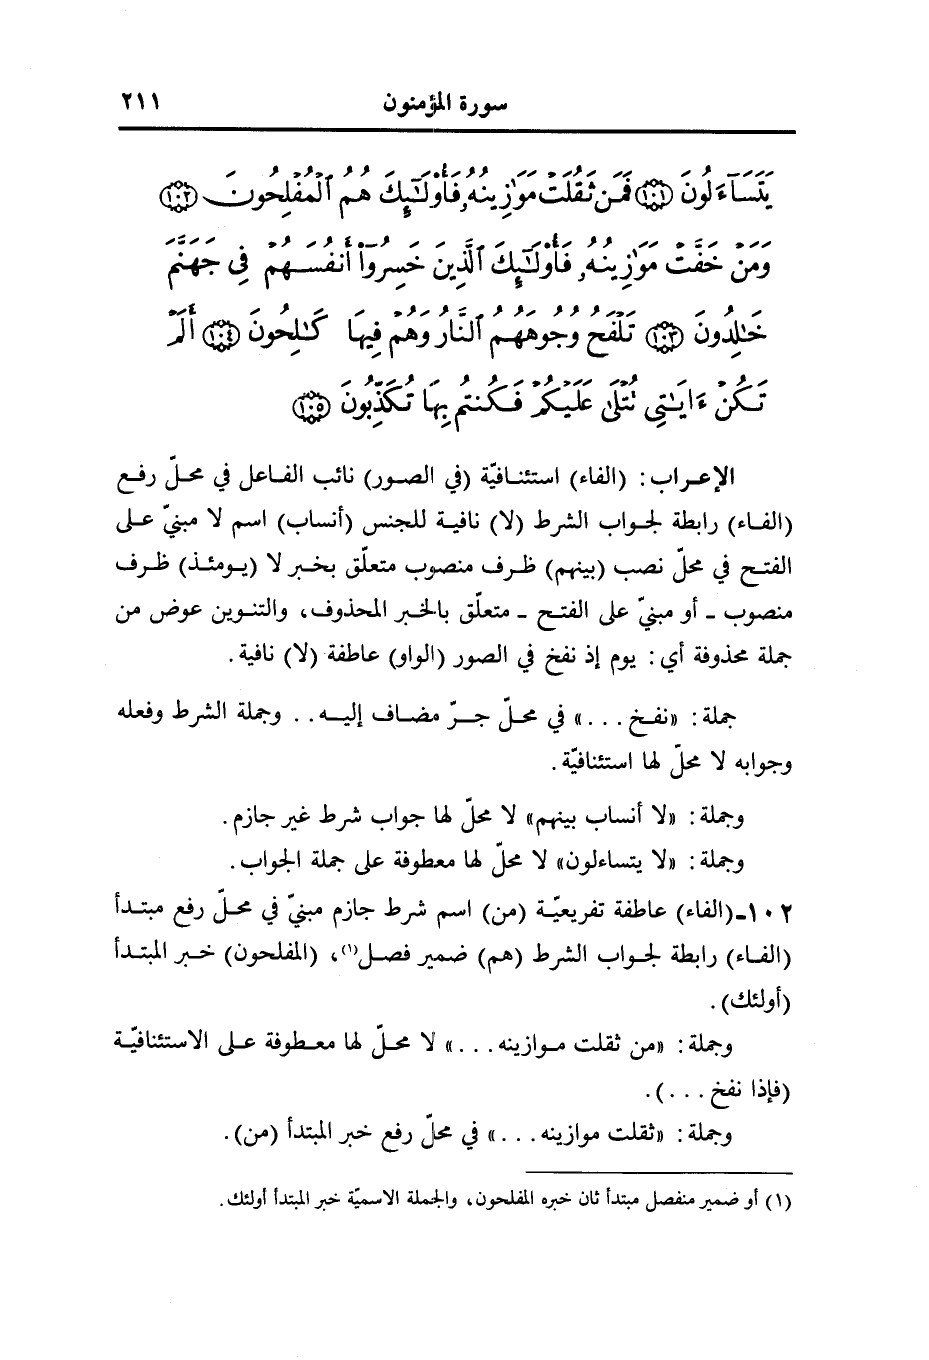 سورة المؤمنون ٢١١
يَتَسَآءَلُونَ ﴿١٠١﴾ فَمَن ثَقُلَتْ مَوَٰزِينُهُۥ فَأُو۟لَٰٓئِكَ هُمُ ٱلْمُفْلِحُونَ ﴿١٠٢﴾
وَمَنْ خَفَّتْ مَوَٰزِينُهُۥ فَأُو۟لَٰٓئِكَ ٱلَّذِينَ خَسِرُوٓا۟ أَنفُسَهُمْ فِى جَهَنَّمَ
خَٰلِدُونَ ﴿١٠٣﴾ تَلْفَحُ وُجُوهَهُمُ ٱلنَّارُ وَهُمْ فِيهَا كَٰلِحُونَ ﴿١٠٤﴾ أَلَمْ
تَكُنْ ءَايَٰتِى تُتْلَىٰ عَلَيْكُمْ فَكُنتُم بِهَا تُكَذِّبُونَ ﴿١٠٥﴾
الإعراب: (الفاء) استئنافيّة (في الصور) نائب الفاعل في محلّ رفع
(الفاء) رابطة لجواب الشرط (لا) نافية للجنس (أنساب) اسم لا مبنيّ على
الفتح في محلّ نصب (بينهم) ظرف منصوب متعلّق بخبر لا (يومئذ) ظرف
منصوب ـ أو مبنيّ على الفتح ـ متعلّق بالخبر المحذوف، والتنوين عوض من
جملة محذوفة أي: يوم إذ نفخ في الصور (الواو) عاطفة (لا) نافية.
جملة: «نفخ...» في محلّ جرّ مضاف إليه.. وجملة الشرط وفعله
وجوابه لا محلّ لها استئنافيّة.
وجملة: «لا أنساب بينهم» لا محلّ لها جواب شرط غير جازم.
وجملة: «لا يتساءلون» لا محلّ لها معطوفة على جملة الجواب.
١٠٢ـ (الفاء) عاطفة تفريعيّة (من) اسم شرط جازم مبنيّ في محلّ رفع مبتدأ
(الفاء) رابطة لجواب الشرط (هم) ضمير فصل(١)، (المفلحون) خبر المبتدأ
(أولئك).
وجملة: «من ثقلت موازينه...» لا محلّ لها معطوفة على الاستئنافيّة
(فإذا نفخ...).
وجملة: «ثقلت موازينه...» في محلّ رفع خبر المبتدأ (من).
(١) أو ضمير منفصل مبتدأ ثان خبره المفلحون، والجملة الاسميّة خبر المبتدأ أولئك.